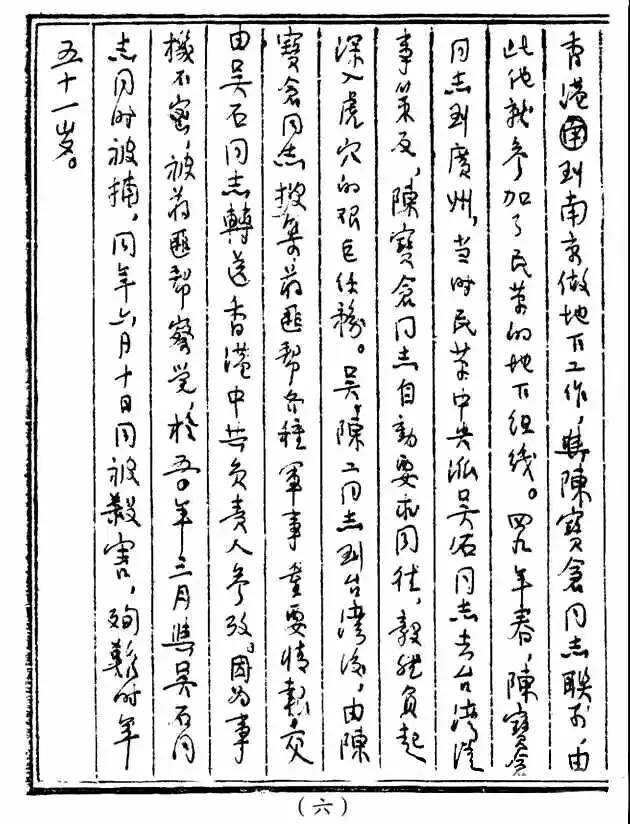 香港圕到南京做地下工作，與陳寶倉同志联系，由
此他就参加了民革的地下组线。四九年春，陳寶倉
同志到廣州，当时民革中央派吴石同志去台湾從
事策反，陳寶倉同志自動要求同往，毅然負起
深入虎穴的艰巨任務。吴、陳二同志到台湾後，由陳
寶倉同志搜集蒋匪帮各種軍事重要情報，交
由吴石同志轉送香港中共负责人参攷。因为事
機不密，被蒋匪帮察觉，於五〇年三月與吴石同
志同时被捕，同年六月十日同被殺害，殉難时年
五十一岁。
（六）